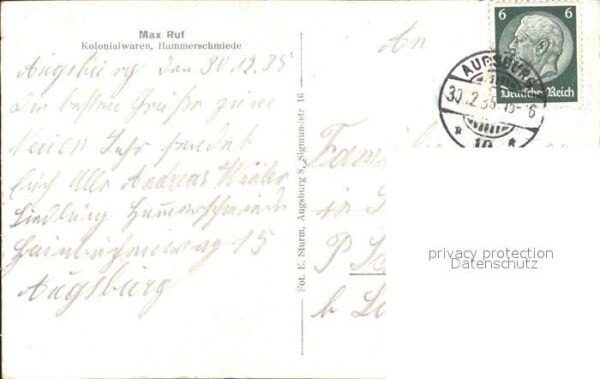 Max Ruf
Kolonialwaren, Hammerschmiede
Augsburg den 30.12.35
Die besten Grüße zum
Neuen Jahr sendet
Euch Alle Andreas
Siedlung Hammerschmiede
15
Augsburg
Fot. E. Sturm, Augsburg 8, Sigmundstr 16
An
Fami
in
P
b
6 6
Deutsches Reich
AUGSBURG
30.12.35.15-6
* 10 *
privacy protection
Datenschutz